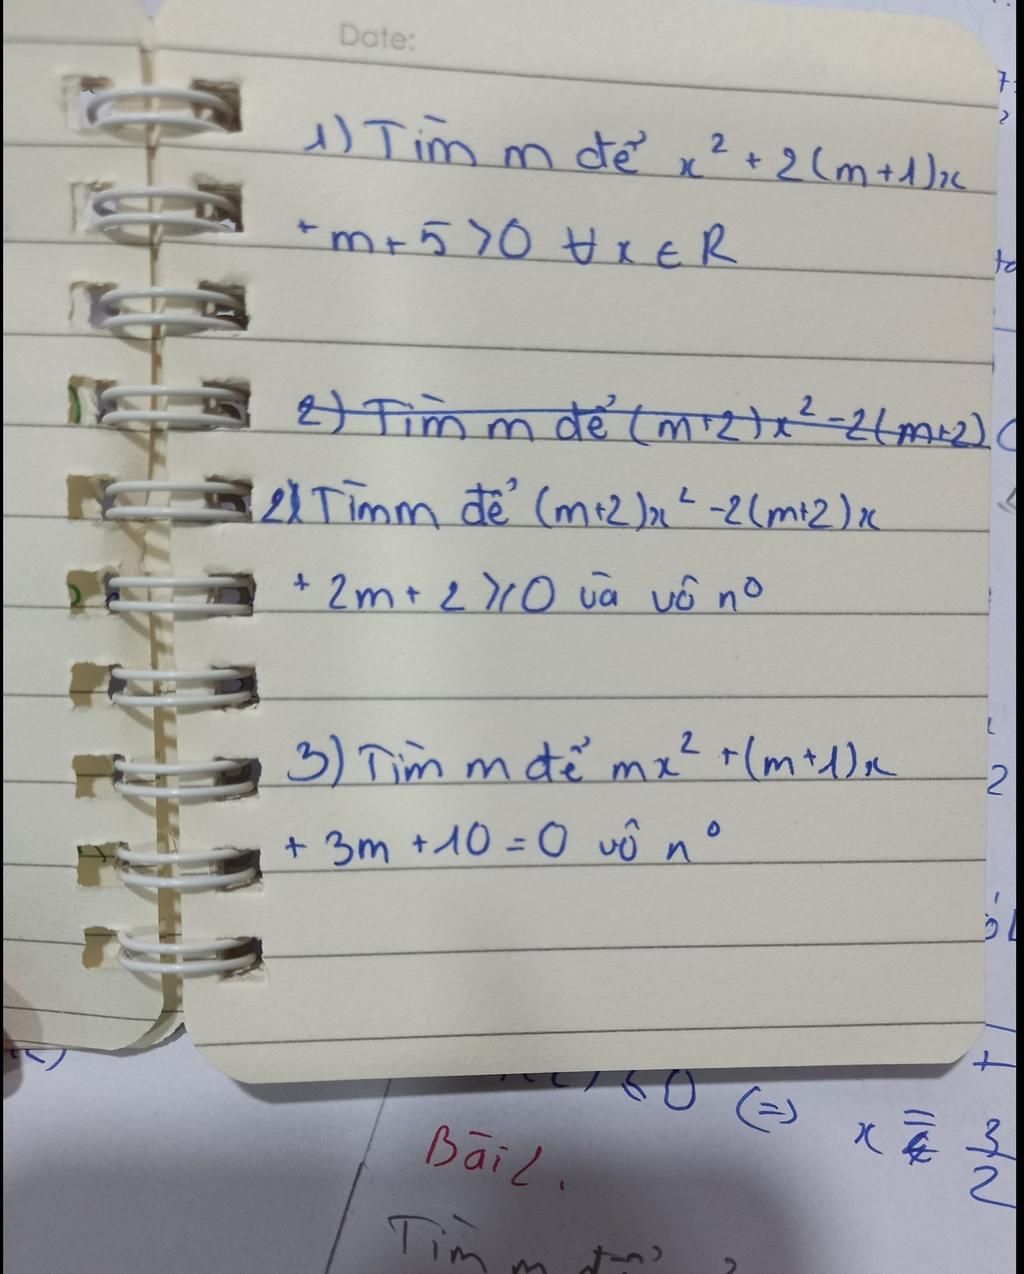 Date:
1) Tìm m để x² + 2(m+1)x
+ m + 5 > 0 ∀ x ∈ R
2) Tìm m để (m+2)x² - 2(m+2)
2) Tìm m để (m+2)x² - 2(m+2)x
+ 2m + 2 ≥ 0 và vô n⁰
3) Tìm m để mx² + (m+1)x
+ 3m + 10 = 0 vô n⁰
≤ 0 (=) x = 3/2
Bài 2.
Tìm m